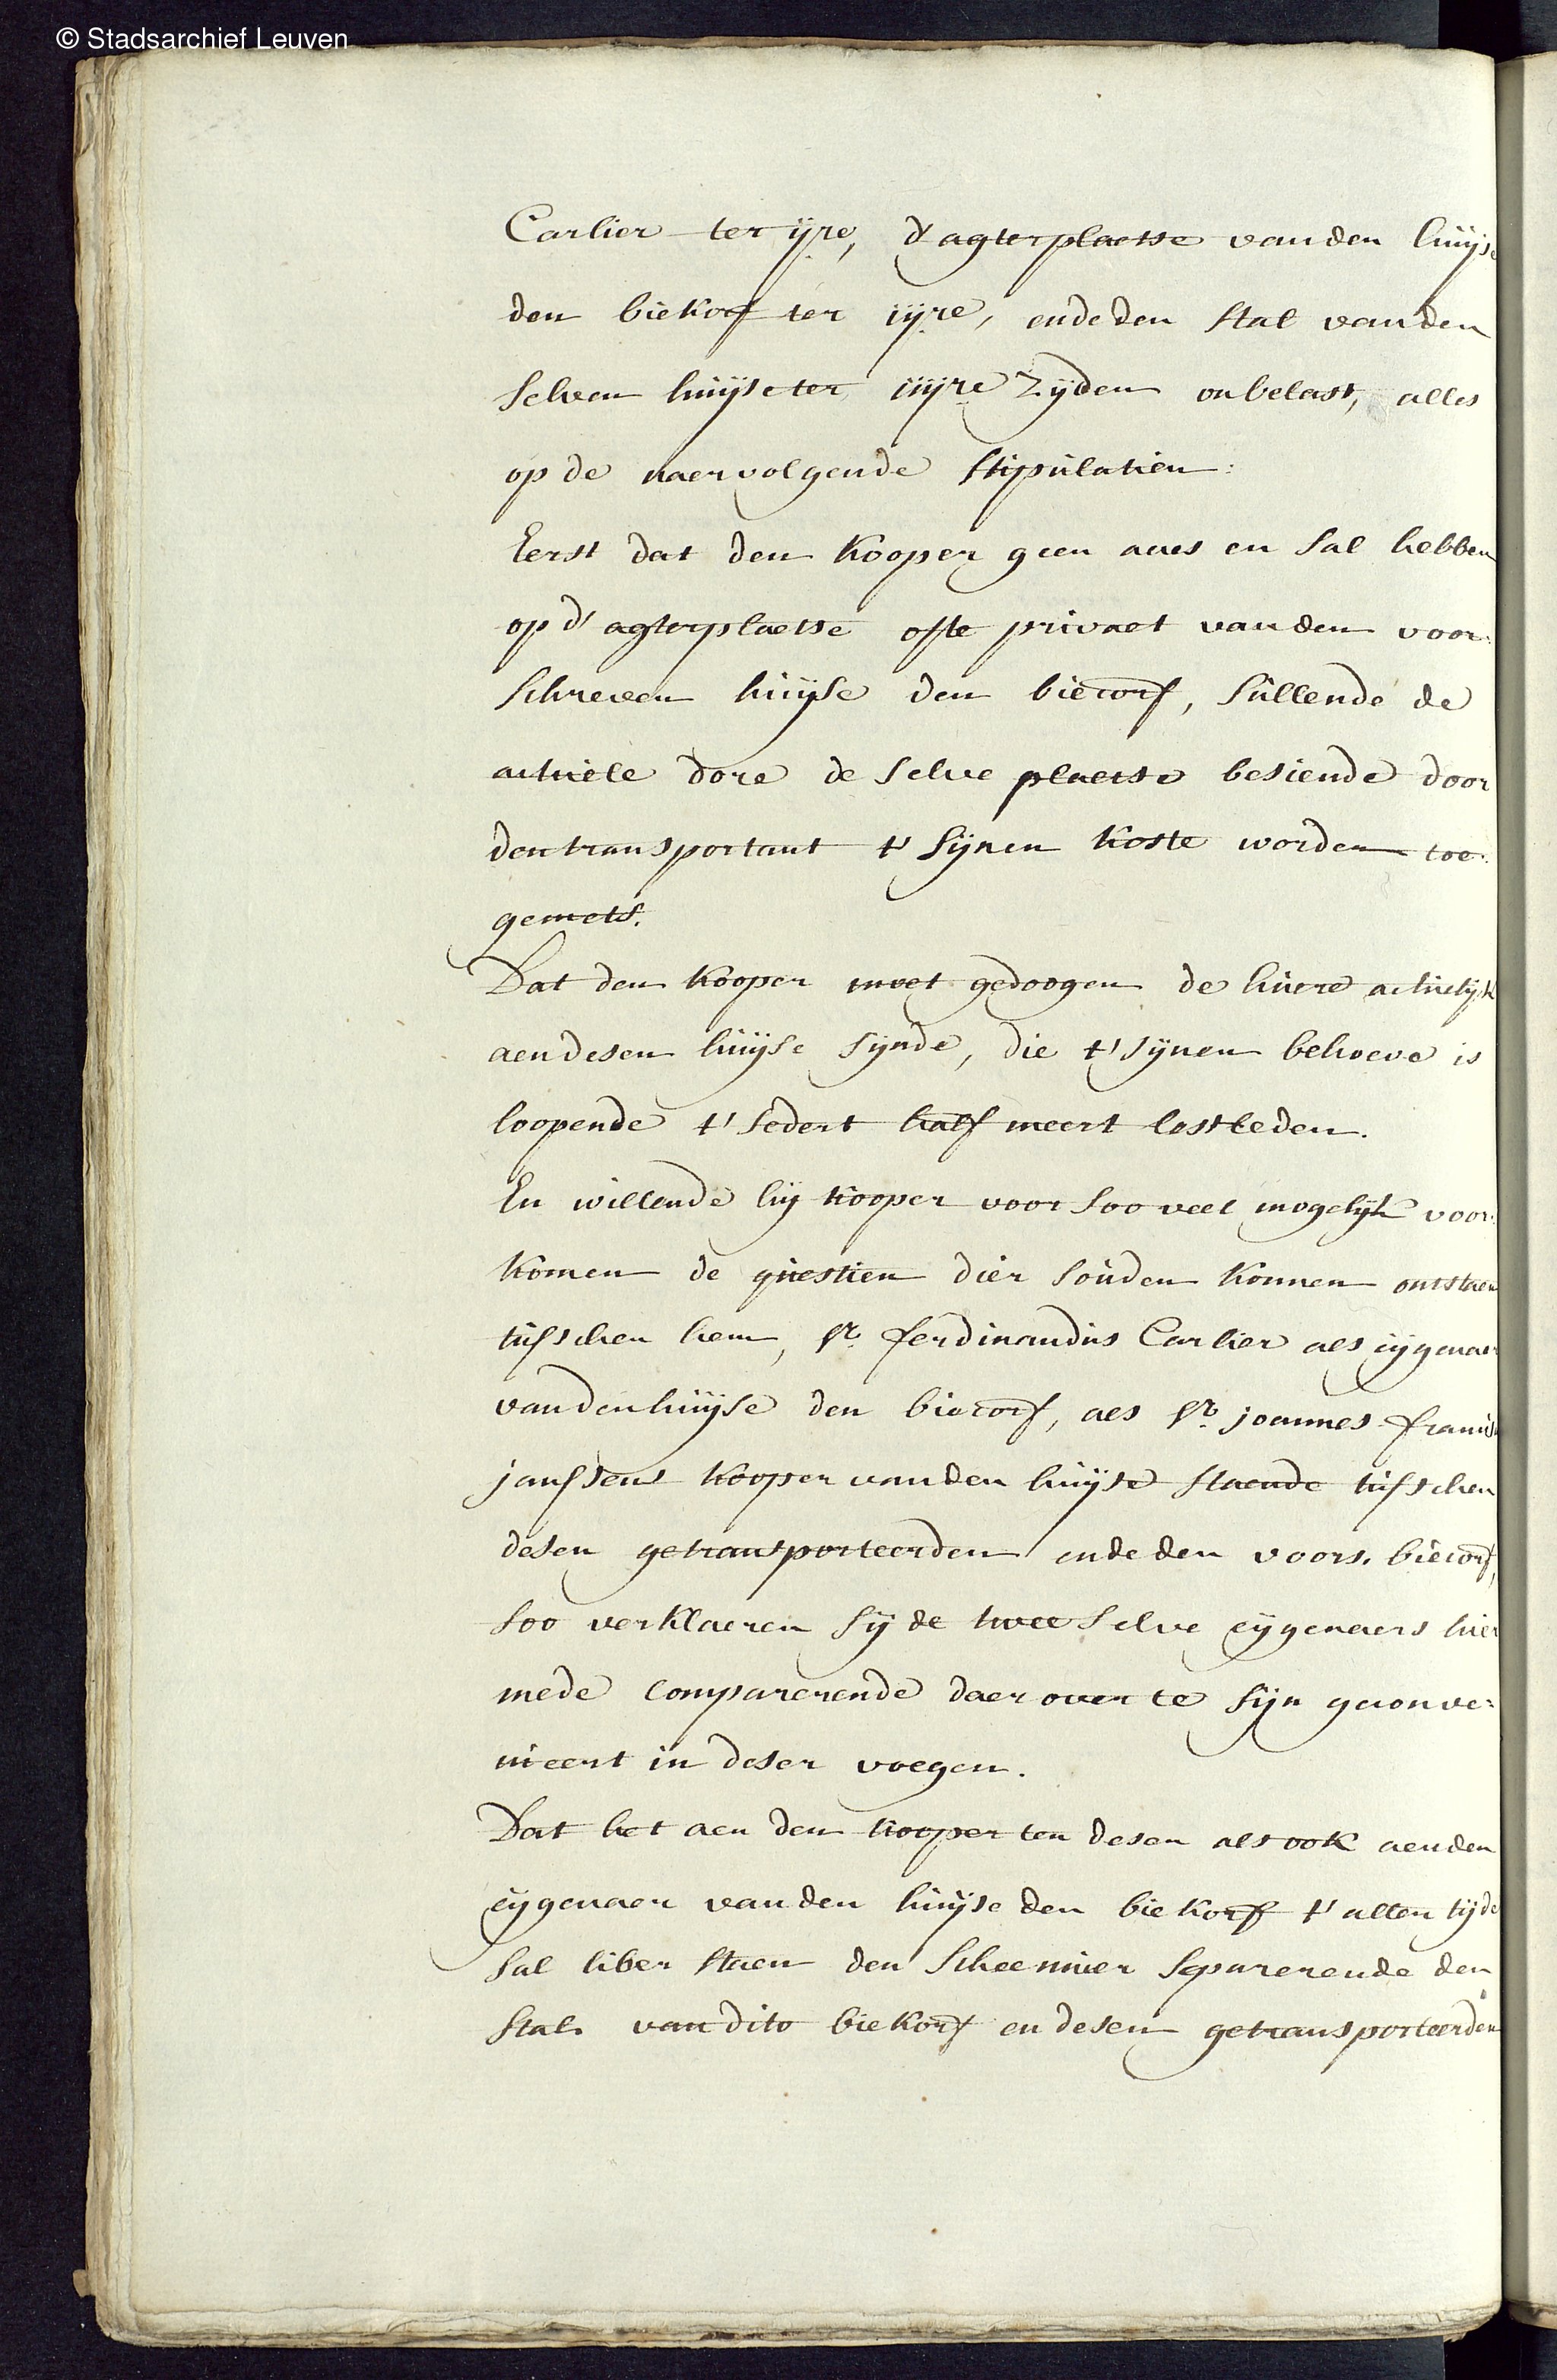 © Stadsarchief Leuven
Carlier ter ijre, d'agterplaetse vanden huijse
den biekorf ter iijre, ende den stal vanden
selven huijse ter iiijre zijden onbelast, alles
op de naervolgende stipulatien:
Eerst dat den Kooper geen acces en sal hebben
op d'agterplaetse ofte privaet vanden voor:
schreven huijse den biecorf, sullende de
actuële dore de selve plaetse besiende door
den transportant t' sijnen koste worden toe:
gemets.
Dat den Kooper moet gedoogen de huere actuelijk
aen desen huijse sijnde, die t' sijnen behoeve is
loopende t' sedert half meert lestleden.
En willende hij Kooper voor soo veel mogelijk voor:
komen de questien dier souden konnen ontstaen
tusschen hem, sr. ferdinandus Carlier als eijgenaer
vanden huijse den biecorf, als sr. joannes francis
janssens Kooper vanden huijse staende tusschen
desen getransporteerden ende den voors. biecorf,
soo verklaeren sij de twee selve eijgenaers hier
mede comparerende daer over te sijn geconve:
nieert in deser voegen.
Dat het aen den Kooper ten desen als ook aen den
eijgenaer vanden huijse den biekorf t' allen tijde
sal liber staen den Scheemuer separerende den
stal van dito biekorf en desen getransporteerden